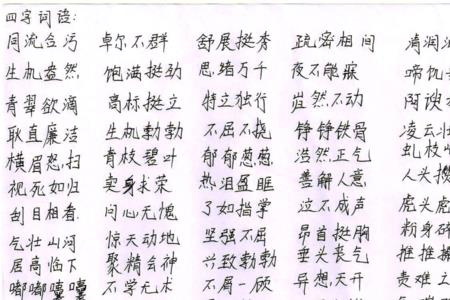 四字词语:
同流合污 卓尔不群 舒展挺秀 疏密相间 清润
生机盎然, 饱满挺劲 思绪万千 夜不能寐 啼饥
青翠欲滴 高标挺立 特立独行 岿然不动 阿谀
耿直廉洁 生机勃勃 不屈不挠 铮铮铁骨 凌云壮
横眉怒扫 青枝碧叶 郁郁葱葱, 浩然正气 虬枝
视死如归 卖身求荣 热泪盈眶 善解人意, 人头攒
刮目相看. 问心无愧 了如指掌 泣不成声 虎头虎
气壮山河 惊天动地 坚强不屈 昂首挺胸 粉身碎
居高临下 聚精会神 兴致勃勃 垂头丧气 推推搡
嘟嘟囔囔 不学无术 不屑一顾 异想天开 责难